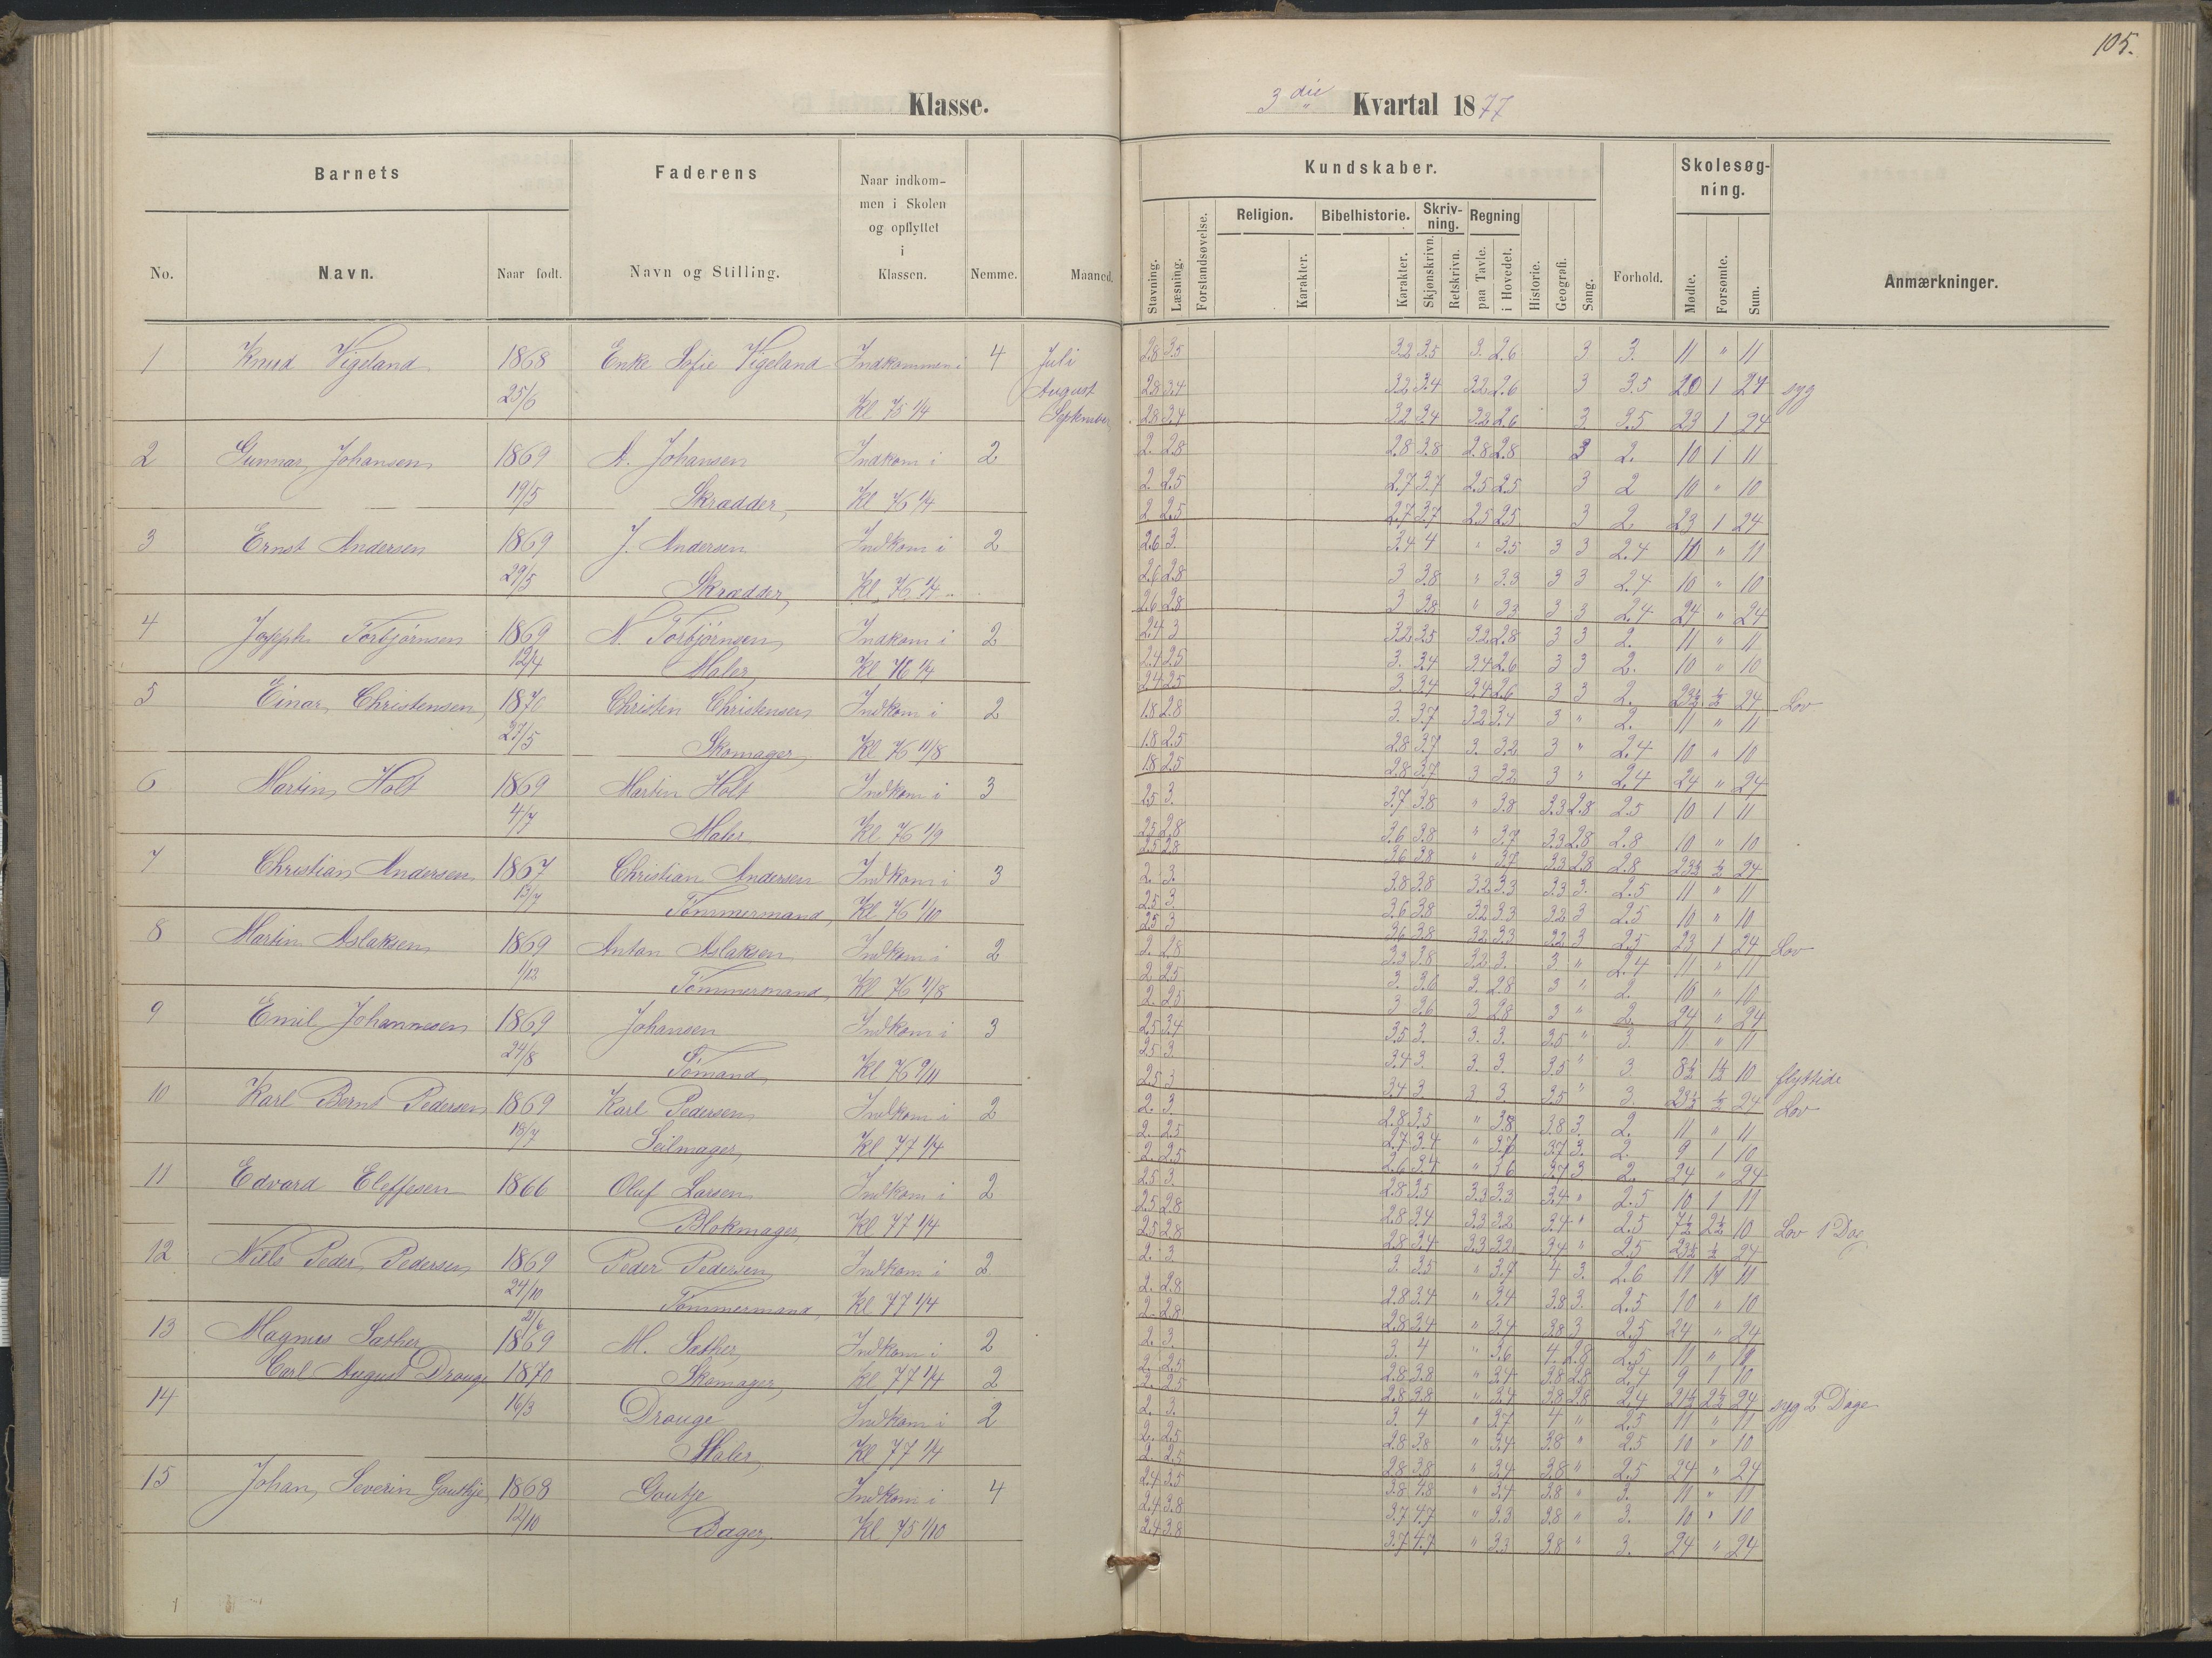 105.
Klasse.
3 die Kvartal 1877
Barnets
Faderens
Naar indkommen i Skolen og opflyttet i Klassen.
No.
Navn.
Naar født.
Navn og Stilling.
Nemme.
Maaned.
Kundskaber.
Skolesøgning.
Religion.
Bibelhistorie.
Skrivning.
Regning
Stavning.
Læsning.
Forstandsøvelse.
Karakter.
Karakter.
Skjønskrivn.
Retskrivn.
paa Tavle.
i Hovedet.
Historie.
Geografi.
Sang.
Forhold.
Mødte.
Forsømte.
Sum.
Anmærkninger.
1 Knud Vigeland 1868 Enke Sofie Vigeland Indkommen i 4 Juli
25/6 Kl 75 1/4 August
September
2.8 3.5 3.2 3.5 3. 2.6 3 3. 11 " 11
2.8 3.4 3.2 3.4 3.2 2.6 3 3.5 20 1 24 syg
2.8 3.4 3.2 3.4 3.2 2.6 3. 3.5 23 1 24
2 Gunnar Johansen 1869 A. Johansen Indkom i 2
19/5 Skrædder, Kl 76 1/4
2. 2.8 2.8 3.8 2.8 2.8 3 2. 10 1 11
2. 2.5 2.7 3.7 2.5 2.5 3 2 10 " 10
2 2.5 2.7 3.7 2.5 2.5 3 2. 23 1 24
3 Ernst Andersen 1869 J. Andersen Indkom i 2
29/5 Skrædder, Kl 76 1/4
2.6 3. 3.4 4 " 3.5 3 3 2.4 11 " 11
2.6 2.8 3 3.8 " 3.3 3 3 2.4 10 " 10
2.6 2.8 3 3.8 " 3.3 3 3 2.4 24 " 24
4 Joseph Torbjørnsen 1869 N. Torbjørnsen Indkom i 2
12/4 Maler, Kl 76 1/4
2.4 3 3.2 3.5 3.2 2.8 3 3 2. 11 " 11
2.4 2.5 3. 3.4 3.4 2.6 3 3 2. 10 " 10
2.4 2.5 3. 3.4 3.4 2.6 3 3 2. 23½ ½ 24 Lov
5 Einar Christensen, 1870 Christen Christensen Indkom i 2
27/5 Skomager, Kl 76 11/8
1.8 2.8 3. 3.7 3.2 3.4 3 " 2. 11 " 11
1.8 2.5 2.8 3.7 3. 3.2 3 " 2.4 10 " 10
1.8 2.5 2.8 3.7 3 3.2 3 " 2.4 24 " 24
6 Martin Holt 1869 Martin Holt Indkom i 3
4/7 Maler Kl 76 1/9
2.5 3. 3.7 3.8 " 3.8 3.3 2.8 2.5 10 1 11
2.5 2.8 3.6 3.8 " 3.7 3.3 2.8 2.8 10 " 10
2.5 2.8 3.6 3.8 " 3.7 3.3 2.8 2.8 23½ ½ 24
7 Christian Andersen 1867 Christian Andersen Indkom i 3
13/7 Tømmermand, Kl 76 1/10
2. 3. 3.8 3.8 3.2 3.3 3.3 3. 2.5 11 " 11
2.5 3 3.6 3.8 3.2 3.3 3.2 3 2.5 10 " 10
2.5 3 3.6 3.8 3.2 3.3 3.2 3 2.5 23 1 24 Lov
8 Martin Aslaksen 1869 Anton Aslaksen Indkom i 2
1/12 Tømmermand, Kl 76 11/8
2. 2.8 3.3 3.8 3.2 3. 3 " 2.4 11 " 11
2 2.5 3. 3.6 3. 2.8 3 " 2. 10 " 10
2. 2.5 3 3.6 3 2.8 3 " 2. 24 " 24
9 Emil Johannesen 1869 Johansen Indkom i 3
24/8 Tømand Kl 76 9/11
2.5 3.4 3.5 3. 3. 3. 3.5 " 3. 11 " 11
2.5 3. 3.4 3. 3. 3. 3.5 " 3 8½ 1½ 10 flyttide
2.5 3 3.4 3 3 3. 3.5 " 3. 23½ ½ 24 Lov
10 Karl Bernt Pedersen 1869 Karl Pedersen Indkom i 2
18/7 Seilmager, Kl 77 1/4
2. 3. 2.8 3.5 " 3.8 3.8 3. 2. 11 " 11
2. 2.5 2.7 3.4 " 3.6 3.7 3. 2. 9 1 10
2. 2.5 2.6 3.4 " 3.6 3.7 3 2. 24 " 24
11 Edvard Eleffesen 1866 Oluf Larsen Indkom i 2
Blokmager, Kl 77 1/4
2.5 3. 2.8 3.5 3.3 3.3 3.4 " 2.5 10 1 11
2.5 2.8 2.8 3.4 3.3 3.2 3.4 " 2.5 7½ 2½ 10 Lov 1 Dag
2.5 2.8 2.8 3.4 3.3 3.2 3.4 " 2.5 23½ ½ 24
12 Niels Peder Pedersen 1869 Peder Pedersen Indkom i 2
24/10 Tømmermand, Kl 77 1/4
2. 3 3. 3.5 " 3.7 4 3. 2.6 11 " 11
2. 2.8 2.8 3.4 " 3.4 3.8 3. 2.5 10 " 10
2 2.8 2.8 3.4 " 3.4 3.8 3 2.5 24 " 24
13 Magnus Sæther 21/6 1869 M. Sæther, Indkom i 2
Carl August Drouge 1870 Skomager, Kl 77 1/4 2
2. 3. 3. 4 " 3.6 4. 2.8 2.5 11 " 11
2 2.5 2.8 3.8 " 3.4 3.8 2.8 2.4 9 1 10
2 2.5 2.8 3.8 " 3.4 3.8 2.8 2.4 21½ 2½ 24 syg 2 Dage
14 16/3 Drouge Indkom i 2
Maler, Kl 77 1/4
2. 3. 3. 4 " 3.7 4 " 2.5 11 " 11
2. 2.5 2.8 3.8 " 3.4 3.8 " 2.5 10 " 10
2. 2.5 2.8 3.8 " 3.4 3.8 " 2.5 24 " 24
15 Johan Severin Goutje 1868 Goutje Indkom i 4
12/10 Bager, Kl 75 1/10
2.4 3.5 3.8 4.8 " 3.4 3.8 " 3. 11 " 11
2.4 3.8 3.7 4.7 " 3.3 3.8 " 3. 10 " 10
2.4 3.8 3.7 4.7 " 3.3 3.8 " 3. 24 " 24